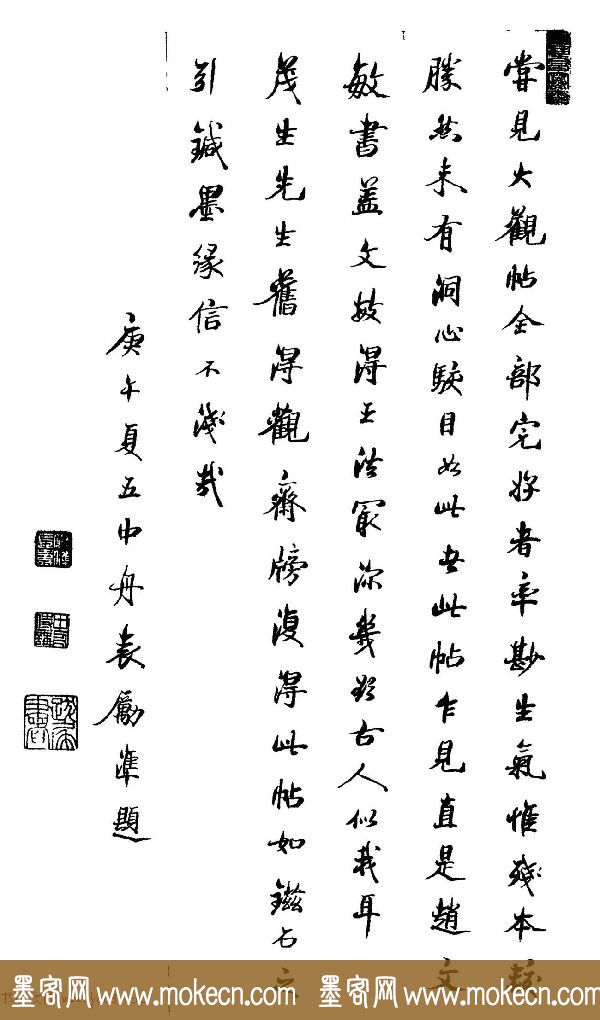 嘗見大觀帖全部完好者率尠生氣惟殘本較
勝然未有洞心駭目如此者此帖乍見直是趙文
敏書蓋文敏得王法最深幾欲古人似我耳
茂生先生舊得觀齋牓復得此帖如鎡石之
引鍼墨緣信不淺哉
庚午夏五中舟袁勵準題
墨客网 www.mokecn.com 墨客网 www.mokecn.com